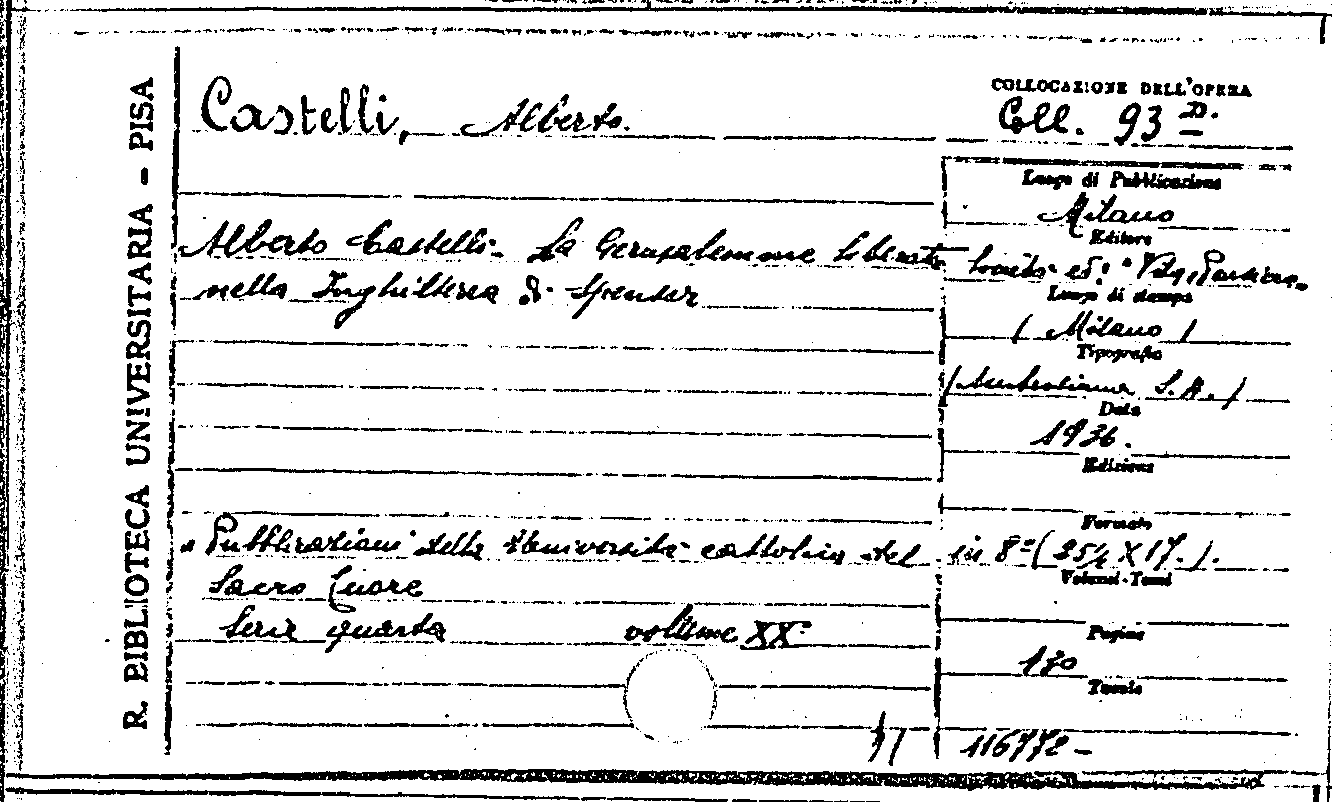 R. BIBLIOTECA UNIVERSITARIA - PISA
Castelli, Alberto.
COLLOCAZIONE DELL'OPERA
Coll. 93 D.
Luogo di Pubblicazione
Milano
Editore
Società ed: "Vita, Pensiero"
Luogo di stampa
(Milano)
Tipografia
(Ambrosiana S.A.)
Data
1936.
Edizione
Formato
in 8° (25½ X 17.).
Volumi-Tomi
Pagine
130
Tavole
116772-
Alberto Castelli- La Gerusalemme liberata
nella Inghilterra di Spenser
"Pubblicazioni della Università cattolica del
Sacro Cuore
Serie quarta volume XX°